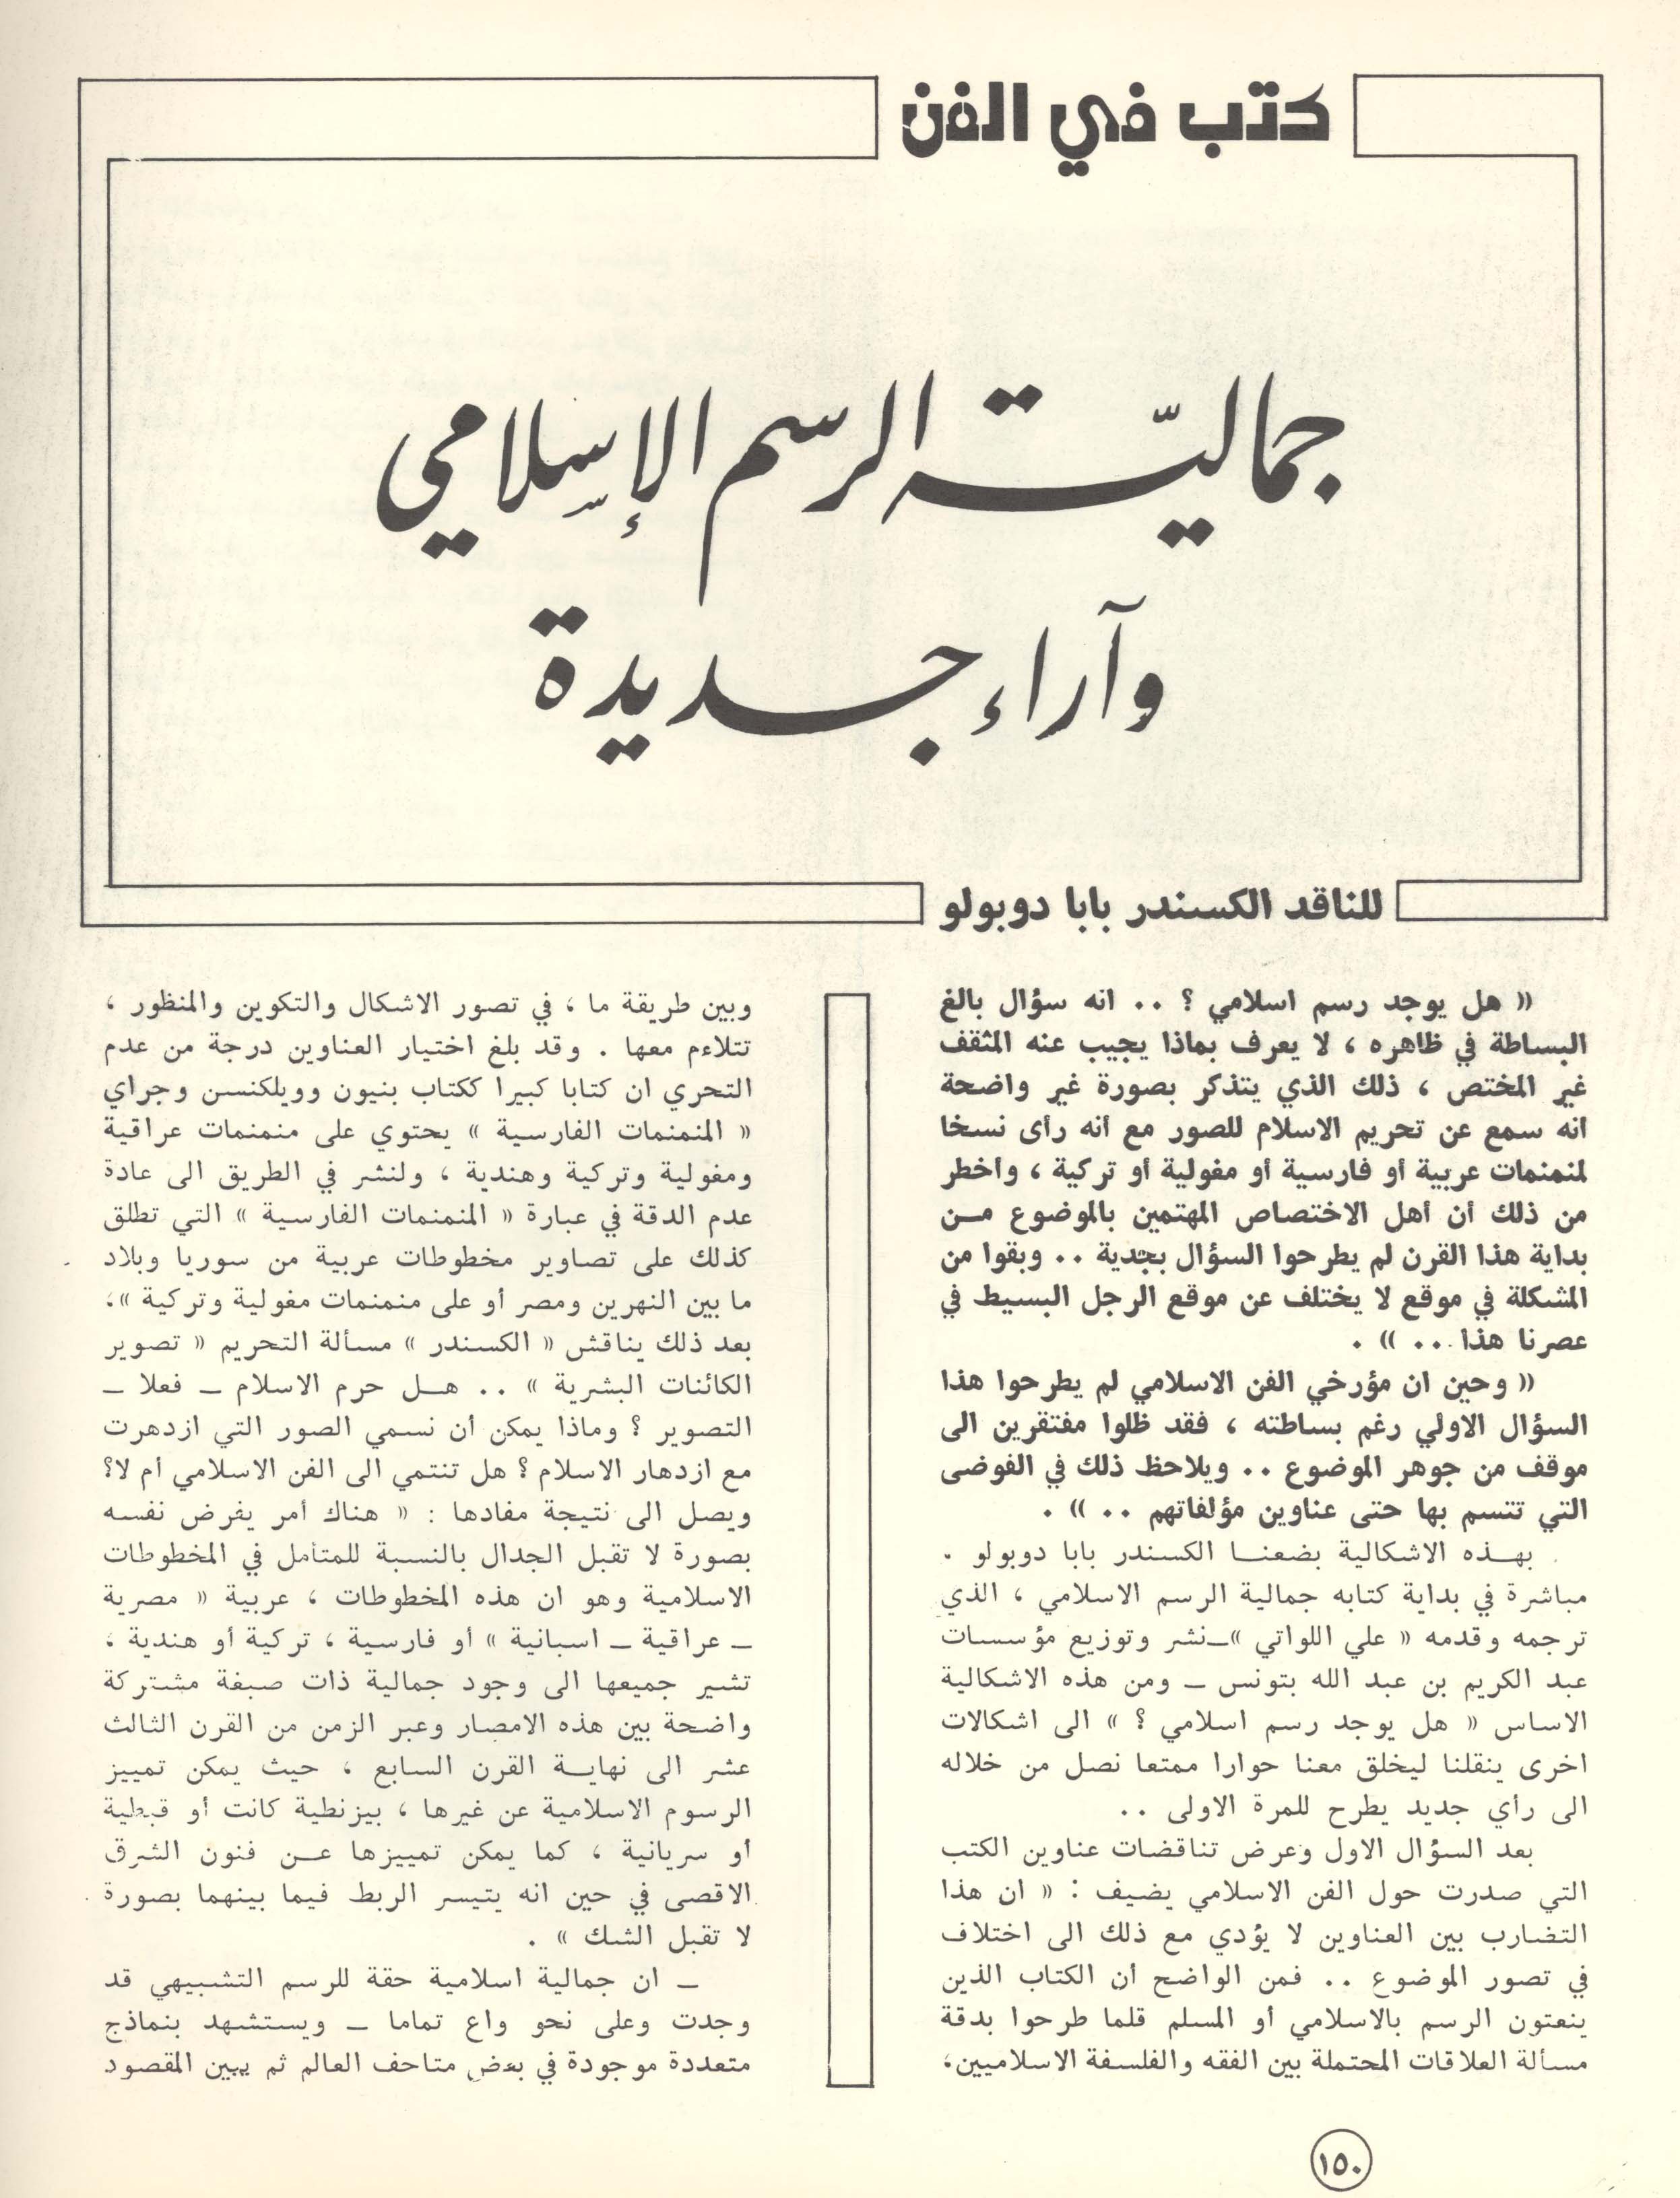 كتب في الفن
جماليّة الرسم الإسلامي
وآراء جديدة
للناقد الكسندر بابا دوبولو
« هل يوجد رسم اسلامي ؟ .. انه سؤال بالغ
البساطة في ظاهره ، لا يعرف بماذا يجيب عنه المثقف
غير المختص ، ذلك الذي يتذكر بصورة غير واضحة
انه سمع عن تحريم الاسلام للصور مع أنه رأى نسخا
لمنمنمات عربية أو فارسية أو مغولية أو تركية ، وأخطر
من ذلك أن أهل الاختصاص المهتمين بالموضوع مــن
بداية هذا القرن لم يطرحوا السؤال بجدية .. وبقوا من
المشكلة في موقع لا يختلف عن موقع الرجل البسيط في
عصرنا هذا .. » .
« وحين ان مؤرخي الفن الاسلامي لم يطرحوا هذا
السؤال الاولي رغم بساطته ، فقد ظلوا مفتقرين الى
موقف من جوهر الموضوع .. ويلاحظ ذلك في الفوضى
التي تتسم بها حتى عناوين مؤلفاتهم .. » .
بهــذه الاشكالية بضعنــا الكسندر بابا دوبولو .
مباشرة في بداية كتابه جمالية الرسم الاسلامي ، الذي
ترجمه وقدمه « علي اللواتي »ــ نشر وتوزيع مؤسسات
عبد الكريم بن عبد الله بتونس ــ ومن هذه الاشكالية
الاساس « هل يوجد رسم اسلامي ؟ » الى اشكالات
اخرى ينقلنا ليخلق معنا حوارا ممتعا نصل من خلاله
الى رأي جديد يطرح للمرة الاولى ..
بعد السؤال الاول وعرض تناقضات عناوين الكتب
التي صدرت حول الفن الاسلامي يضيف : « ان هذا
التضارب بين العناوين لا يؤدي مع ذلك الى اختلاف
في تصور الموضوع .. فمن الواضح أن الكتاب الذين
ينعتون الرسم بالاسلامي أو المسلم قلما طرحوا بدقة
مسألة العلاقات المحتملة بين الفقه والفلسفة الاسلاميين،
وبين طريقة ما ، في تصور الاشكال والتكوين والمنظور ،
تتلاءم معها . وقد بلغ اختيار العناوين درجة من عدم
التحري ان كتابا كبيرا ككتاب بنيون وويلكنسن وجراي
« المنمنمات الفارسية » يحتوي على منمنمات عراقية
ومغولية وتركية وهندية ، ولنشر في الطريق الى عادة
عدم الدقة في عبارة « المنمنمات الفارسية » التي تطلق
كذلك على تصاوير مخطوطات عربية من سوريا وبلاد
ما بين النهرين ومصر أو على منمنمات مغولية وتركية »،
بعد ذلك يناقش « الكسندر » مسألة التحريم « تصوير
الكائنات البشرية » .. هــل حرم الاسلام ــ فعلا ــ
التصوير ؟ وماذا يمكن أن نسمي الصور التي ازدهرت
مع ازدهار الاسلام ؟ هل تنتمي الى الفن الاسلامي أم لا؟
ويصل الى نتيجة مفادها : « هناك أمر يفرض نفسه
بصورة لا تقبل الجدال بالنسبة للمتأمل في المخطوطات
الاسلامية وهو ان هذه المخطوطات ، عربية « مصرية
ــ عراقية ــ اسبانية » أو فارسية ، تركية أو هندية ،
تشير جميعها الى وجود جمالية ذات صبغة مشتركة
واضحة بين هذه الامصار وعبر الزمن من القرن الثالث
عشر الى نهايــة القرن السابع ، حيث يمكن تمييز
الرسوم الاسلامية عن غيرها ، بيزنطية كانت أو قبطية
أو سريانية ، كما يمكن تمييزها عــن فنون الشرق
الاقصى في حين انه يتيسر الربط فيما بينهما بصورة
لا تقبل الشك » .
ــ ان جمالية اسلامية حقة للرسم التشبيهي قد
وجدت وعلى نحو واع تماما ــ ويستشهد بنماذج
متعددة موجودة في بعض متاحف العالم ثم يبين المقصود
١٥٠